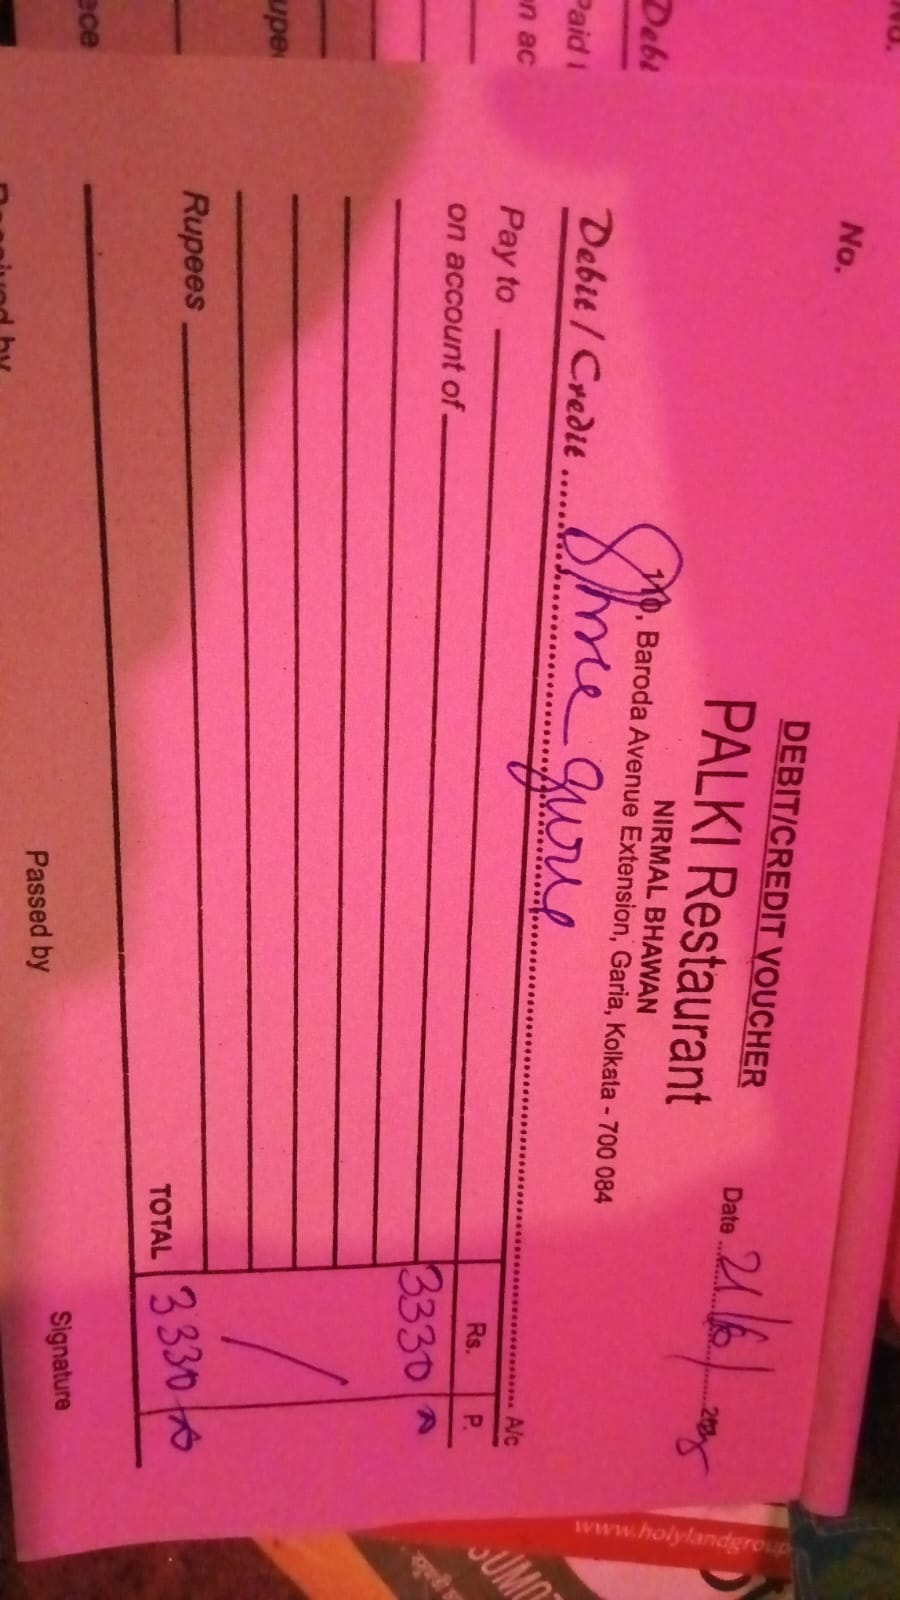 No.
DEBIT/CREDIT VOUCHER
PALKI Restaurant
NIRMAL BHAWAN
110, Baroda Avenue Extension, Garia, Kolkata - 700 084
Date 21/6/
Debit / Credit Shree guru A/c
Pay to Rs. P.
on account of 3330
Rupees
TOTAL 3330
Passed by
Signature
www.holylandgroup